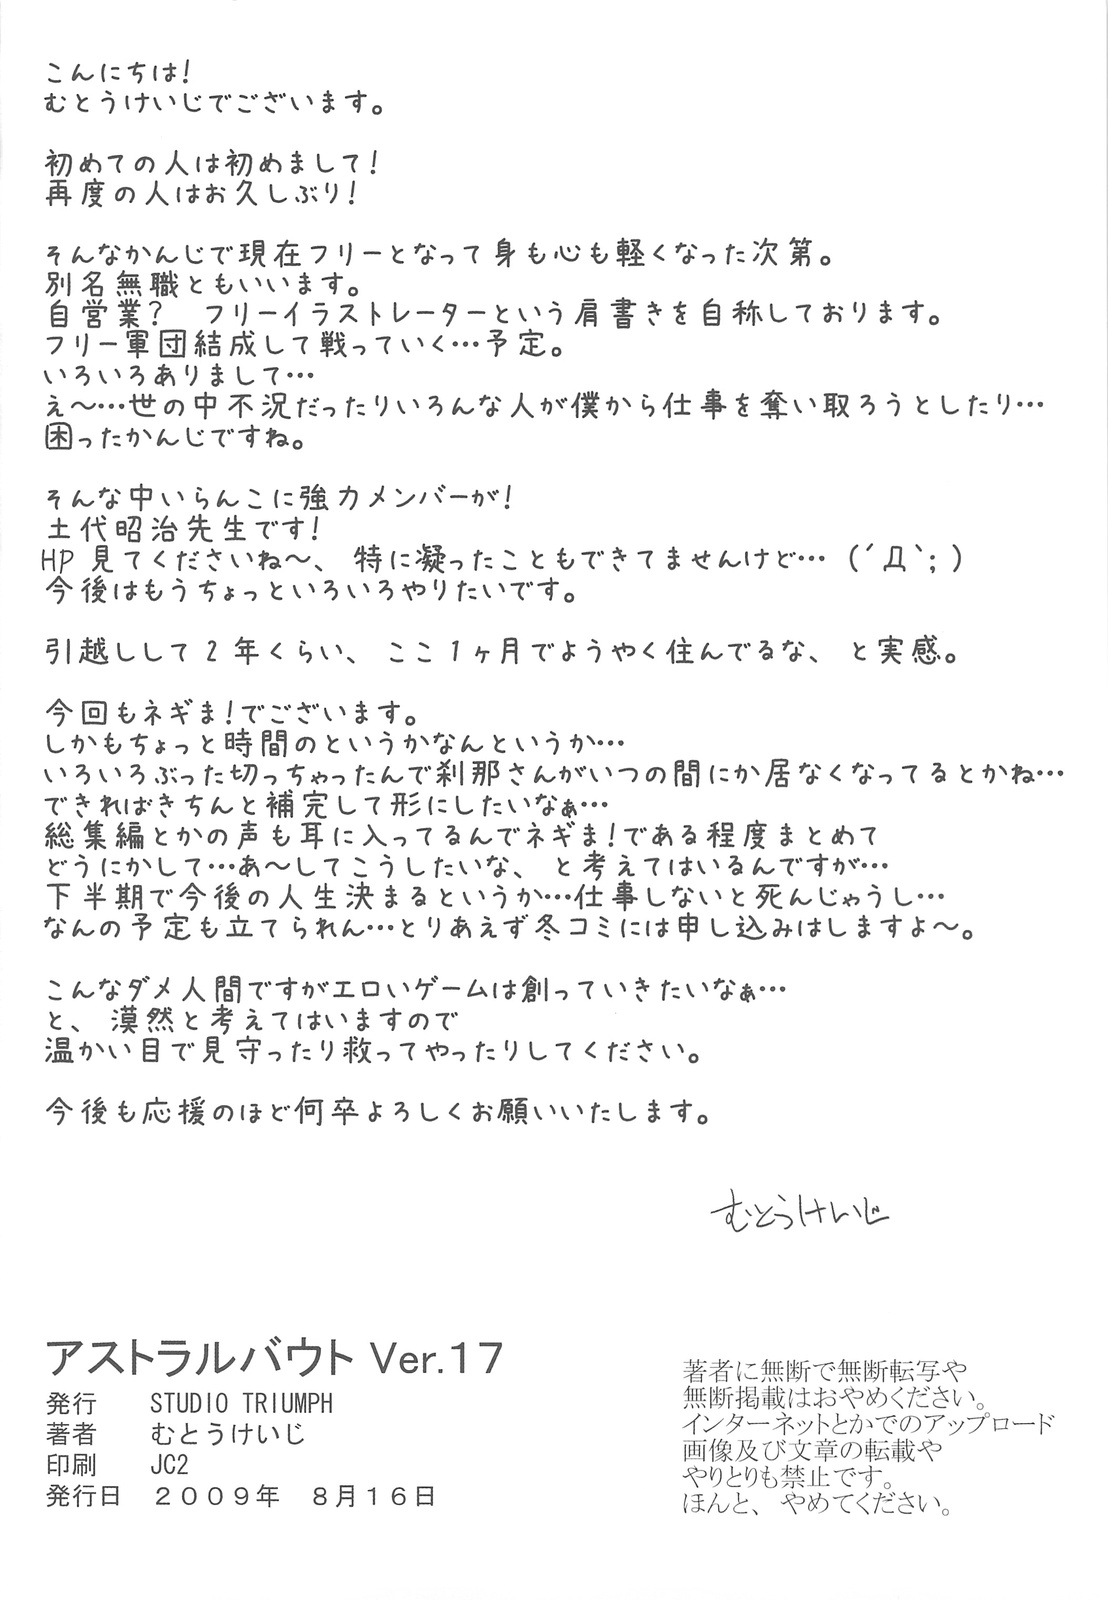 こんにちは!
むとうけいじでございます。
初めての人は初めまして!
再度の人はお久しぶり!
そんなかんじで現在フリーとなって身も心も軽くなった次第。
別名無職ともいいます。
自営業?　フリーイラストレーターという肩書きを自称しております。
フリー軍団結成して戦っていく…予定。
いろいろありまして…
え～…世の中不況だったりいろんな人が僕から仕事を奪い取ろうとしたり…
困ったかんじですね。
そんな中いらんこに強力メンバーが!
土代昭治先生です!
HP 見てくださいね～、特に凝ったこともできてませんけど…(´Д`;)
今後はもうちょっといろいろやりたいです。
引越しして2年くらい、ここ1ヶ月でようやく住んでるな、と実感。
今回もネギま!でございます。
しかもちょっと時間のというかなんというか…
いろいろぶった切っちゃったんで刹那さんがいつの間にか居なくなってるとかね…
できればきちんと補完して形にしたいなぁ…
総集編とかの声も耳に入ってるんでネギま!である程度まとめて
どうにかして…あ～してこうしたいな、と考えてはいるんですが…
下半期で今後の人生決まるというか…仕事しないと死んじゃうし…
なんの予定も立てられん…とりあえず冬コミには申し込みはしますよ～。
こんなダメ人間ですがエロいゲームは創っていきたいなぁ…
と、漠然と考えてはいますので
温かい目で見守ったり救ってやったりしてください。
今後も応援のほど何卒よろしくお願いいたします。
むとうけいじ
アストラルバウト Ver.17
発行　STUDIO TRIUMPH
著者　むとうけいじ
印刷　JC2
発行日　２００９年　８月１６日
著者に無断で無断転写や
無断掲載はおやめください。
インターネットとかでのアップロード
画像及び文章の転載や
やりとりも禁止です。
ほんと、やめてください。